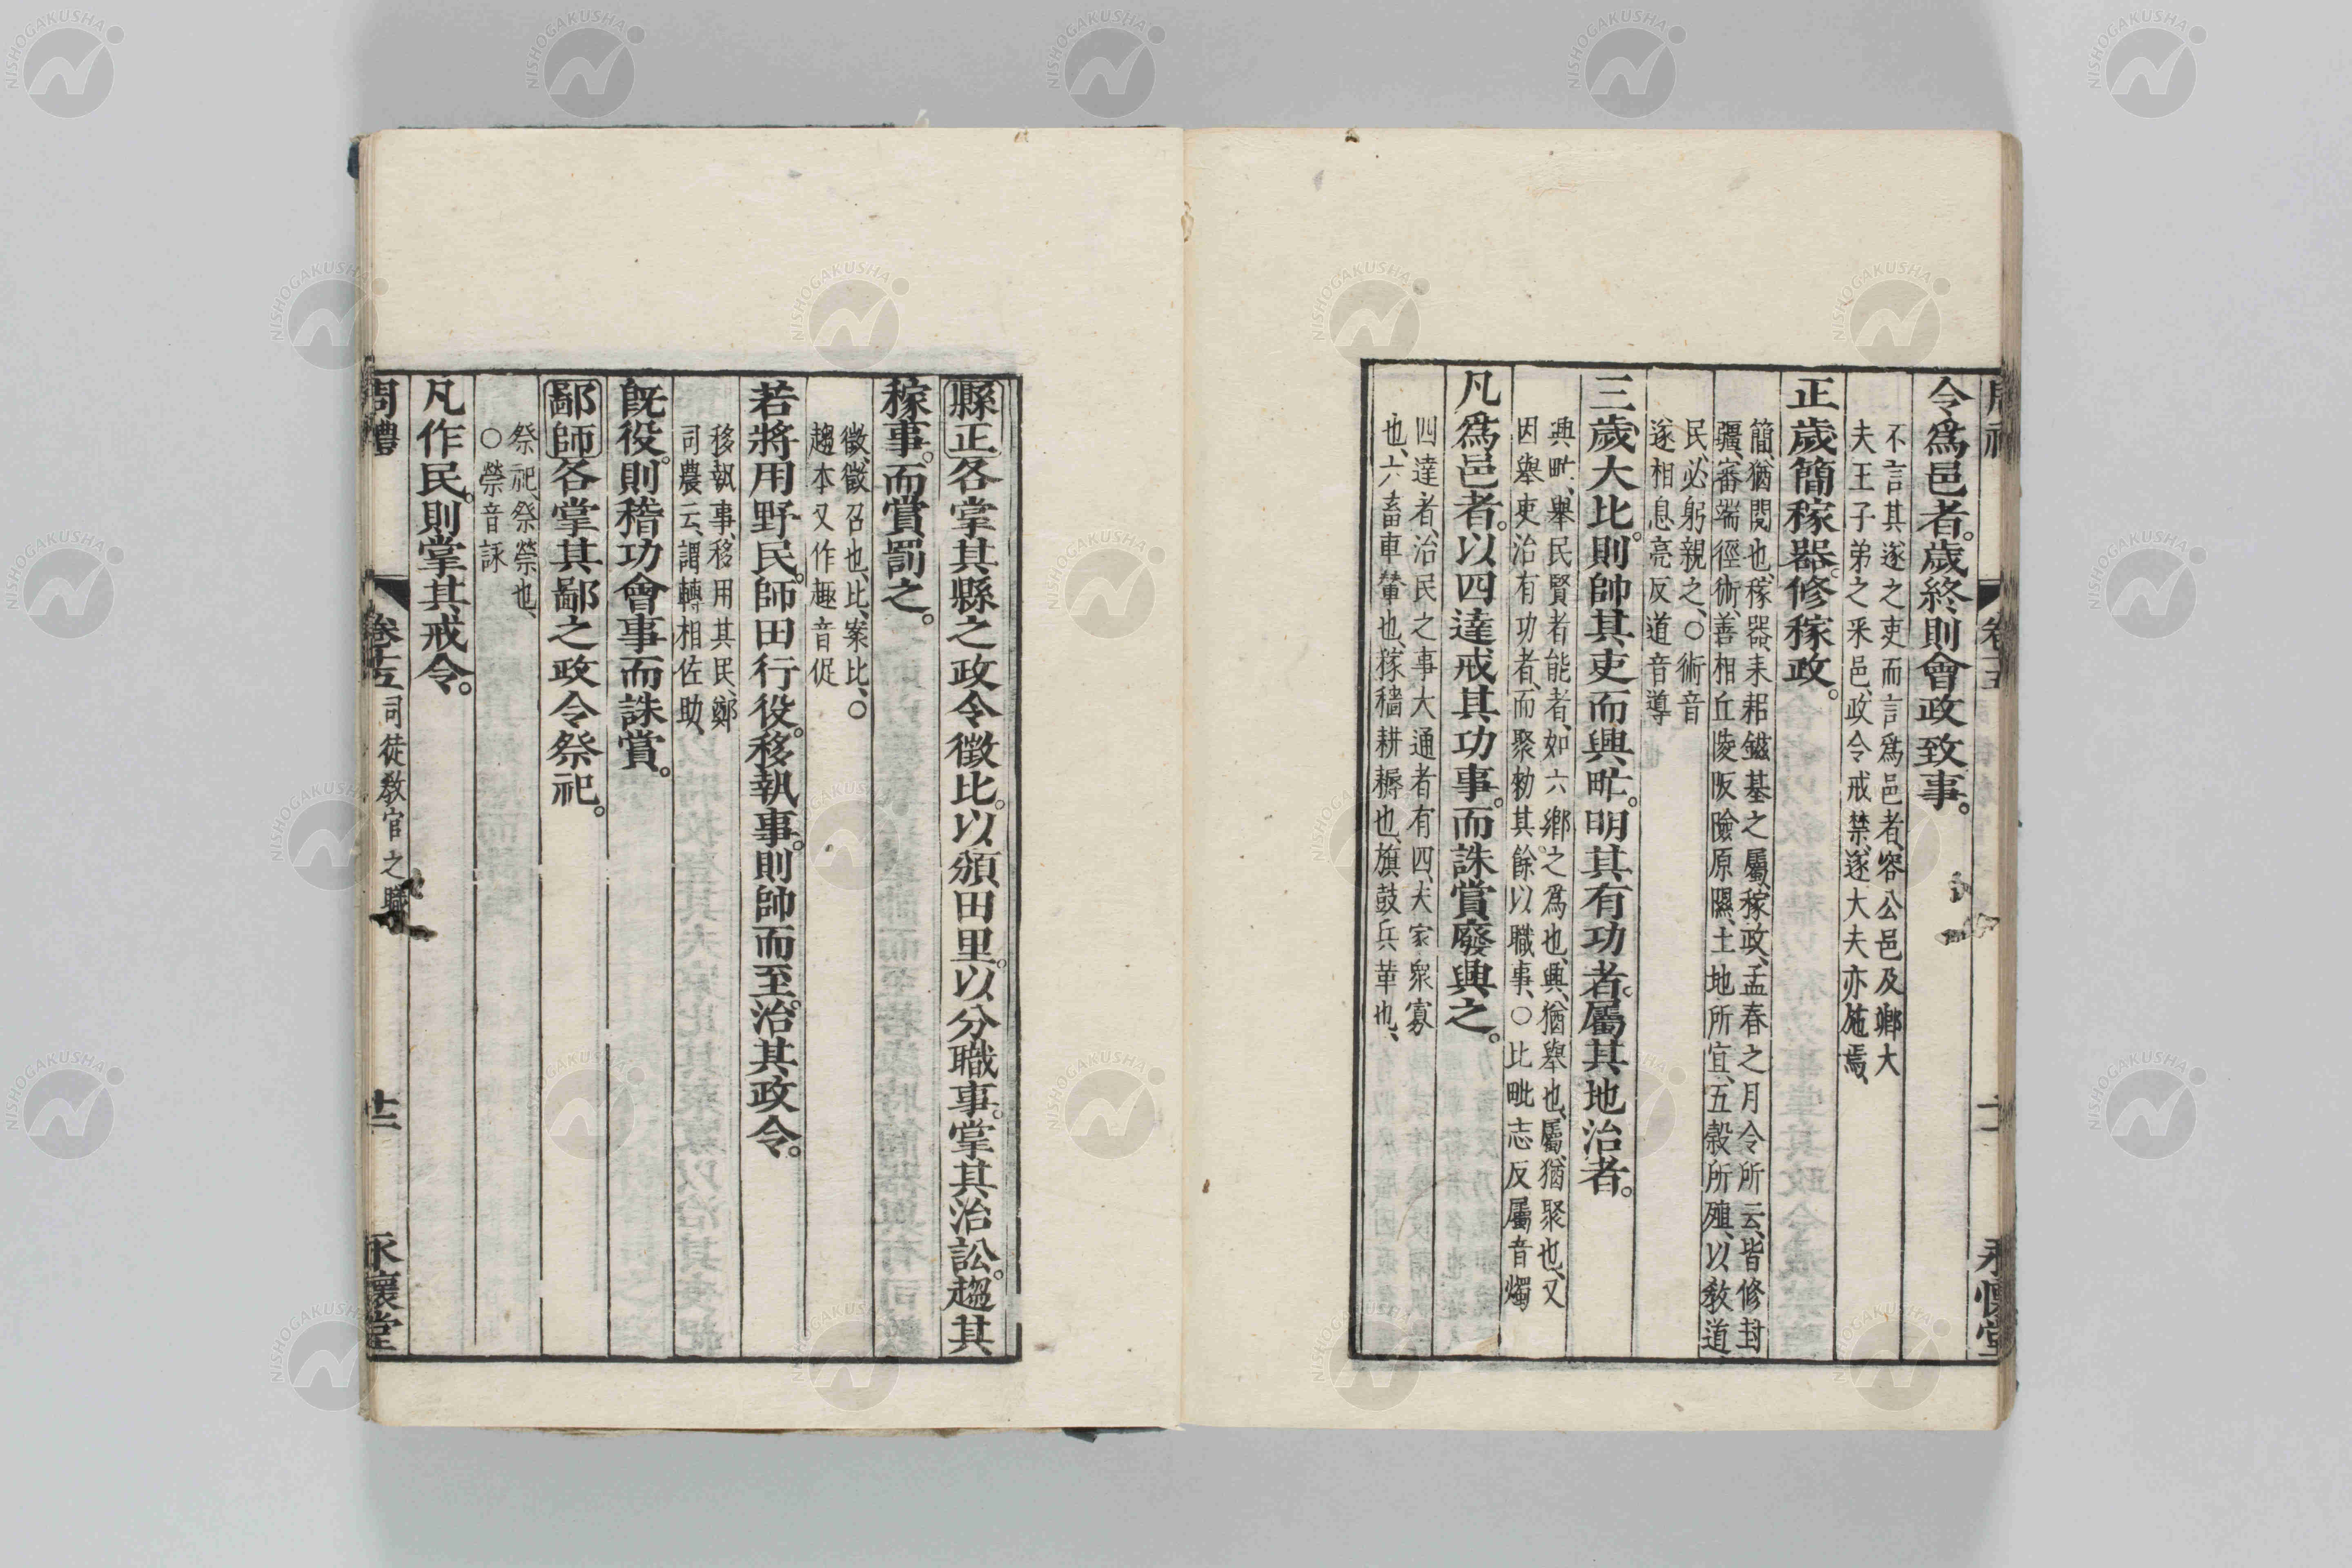 令爲邑者。歲終則會政致事。
不言其遂之吏而言爲邑者、容公邑及鄉大
夫王子弟之采邑、政令戒禁、遂大夫亦施焉、
正歲簡稼器。修稼政。
簡、猶閱也、稼器、耒耜鎡基之屬、稼政、孟春之月令所云、皆修封
疆、審端徑術、善相丘陵阪險原隰、土地所宜、五穀所殖、以敎道
民、必躬親之、○術音
遂相息亮反道音導
三歲大比。則帥其吏而興甿。明其有功者。屬其地治者。
興甿、舉民賢者能者、如六鄉之爲也、興、猶舉也、屬、猶聚也、又
因舉吏治有功者、而聚勑其餘以職事、○比毗志反屬音燭
凡爲邑者。以四達戒其功事。而誅賞廢興之。
四達者、治民之事大通者有四、夫家衆寡
也、六畜車輦也、稼穡耕耨也、旗鼓兵革也、
縣正各掌其縣之政令徵比。以頒田里。以分職事。掌其治訟。趨其
稼事。而賞罰之。
徵、徵召也、比、案比、○
趨本又作趣音促
若將用野民。師田行役。移執事。則帥而至。治其政令。
移執事、移用其民、鄭
司農云、謂轉相佐助、
旣役。則稽功會事而誅賞。
鄙師各掌其鄙之政令祭祀。
祭祀、祭禜也、
○禜音詠
凡作民。則掌其戒令。
周禮 卷十五 司徒敎官之職 十二 永懷堂
NISHOGAKUSHA